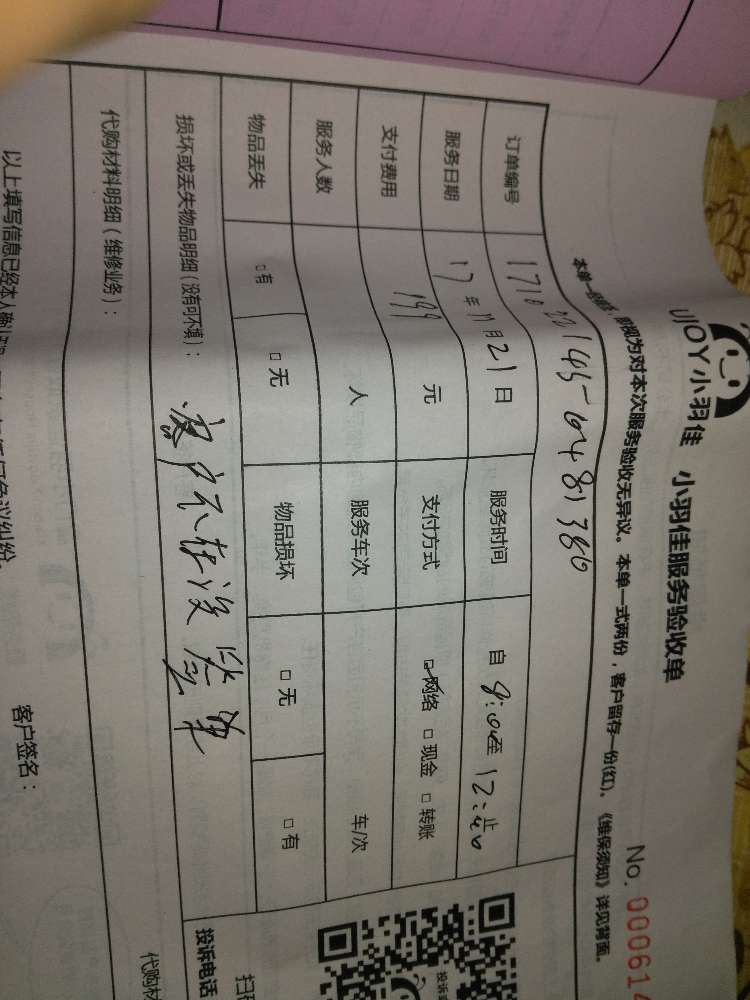 UJOY小羽佳 小羽佳服务验收单
No. 000614
本单一经签字,即视为对本次服务验收无异议。本单一式两份,客户留存一份(红)。《维保须知》详见背面。
订单编号
服务日期 17年11月21日 服务时间 自 8:00至 12:00止
支付费用 199 元 支付方式 ☑网络 □现金 □转账
服务人数 人 服务车次 车/次
物品丢失 □有 □无 物品损坏 □无 □有
损坏或丢失物品明细(没有可不填): 客户不在没签单
代购材料明细(维修业务):
投诉电话
客户签名: